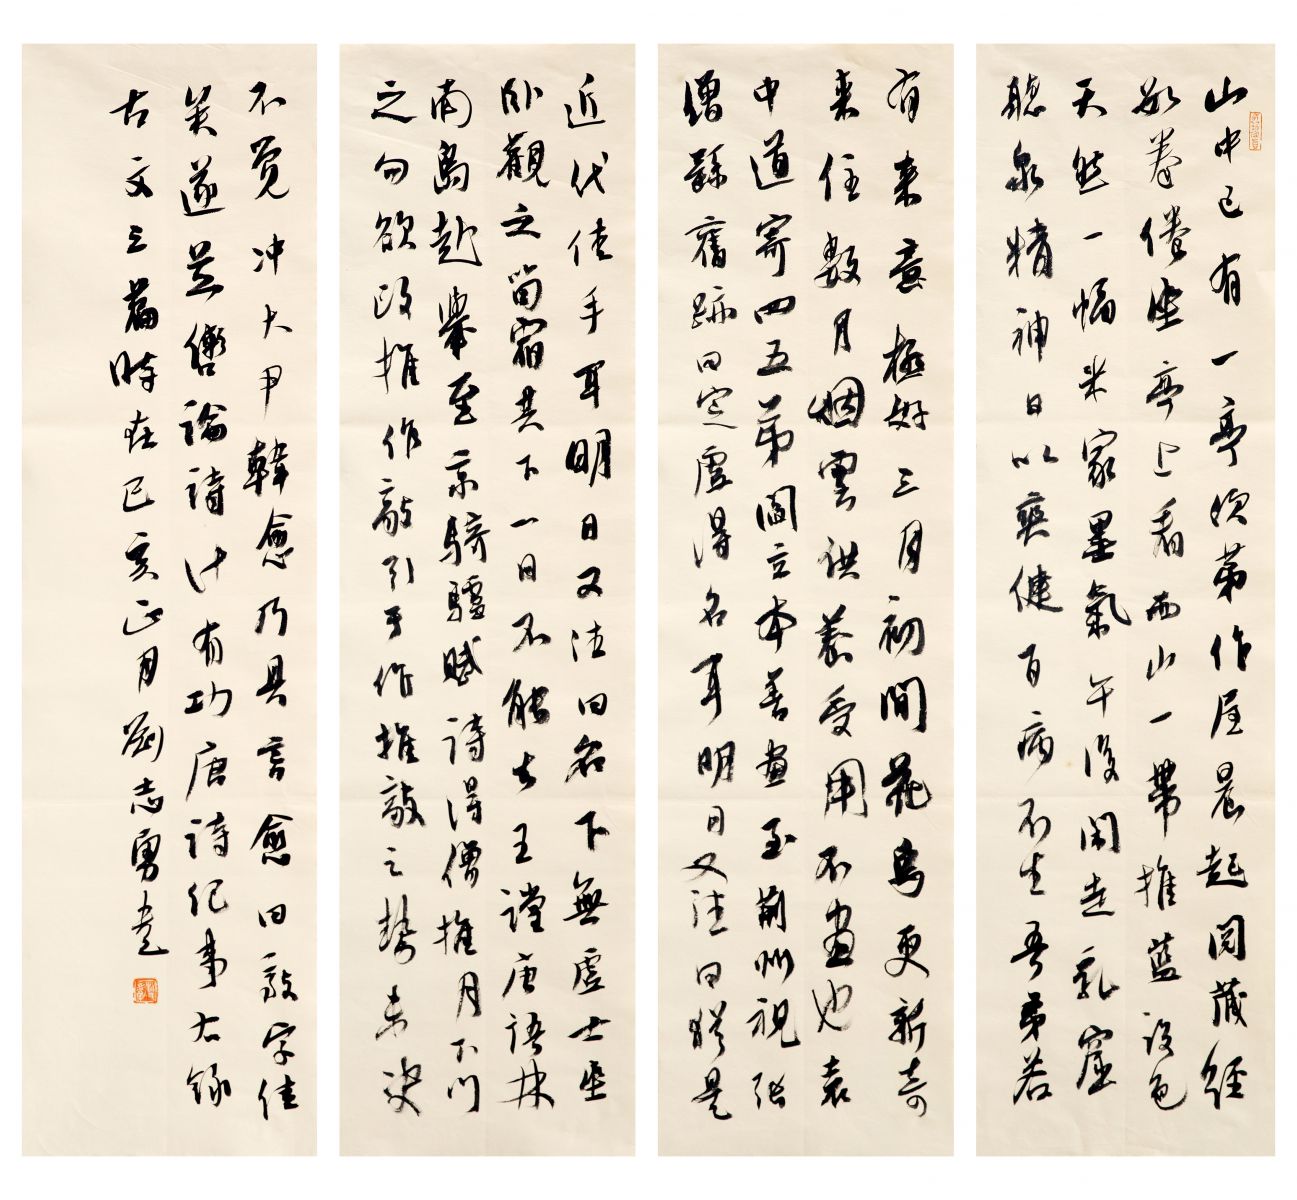 山中已有一亭次第作屋晨起閱藏經
數卷倦坐亭上看西山一帶堆藍設色
天然一幅米家墨氣午後閑走乳窟
聽泉精神日以爽健百病不生吾弟若
有来意極好三月初間花鳥更新奇
来住數月烟雲供養受用不盡也袁
中道寄四五弟閻立本善畫至荊州視張
僧繇舊跡曰定虛得名耳明日又往曰猶是
近代佳手耳明日又往曰名下無虛士坐
卧觀之留宿其下一日不能去王讜唐語林
南島赴舉至京騎驢賦詩得僧推月下門
之句欲改推作敲引手作推敲之勢未決
不覺冲大尹韓愈乃具言愈曰敲字佳
矣遂並轡論詩計有功唐詩紀事右録
古文三篇時在己亥正月劉志勇書